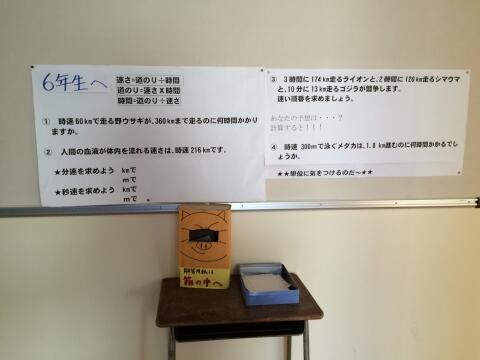 6年生へ
速さ=道のり÷時間
道のり=速さ×時間
時間=道のり÷速さ
① 時速60kmで走る野ウサギが、360kmまで走るのに何時間かかり
ますか。
② 人間の血液が体内を流れる速さは、時速216kmです。
★分速を求めよう kmで
mで
★秒速を求めよう kmで
mで
③ 3時間に174km走るライオンと、2時間に120km走るシマウマ
と、10分に13km走るゴジラが競争します。
速い順番を求めましょう。
あなたの予想は・・・?
計算すると!!!!
④ 時速300mで泳ぐメダカは、1.8km進むのに何時間かかるでし
ょうか。
★★単位に気をつけるのだ~★★
解答用紙は
箱の中へ